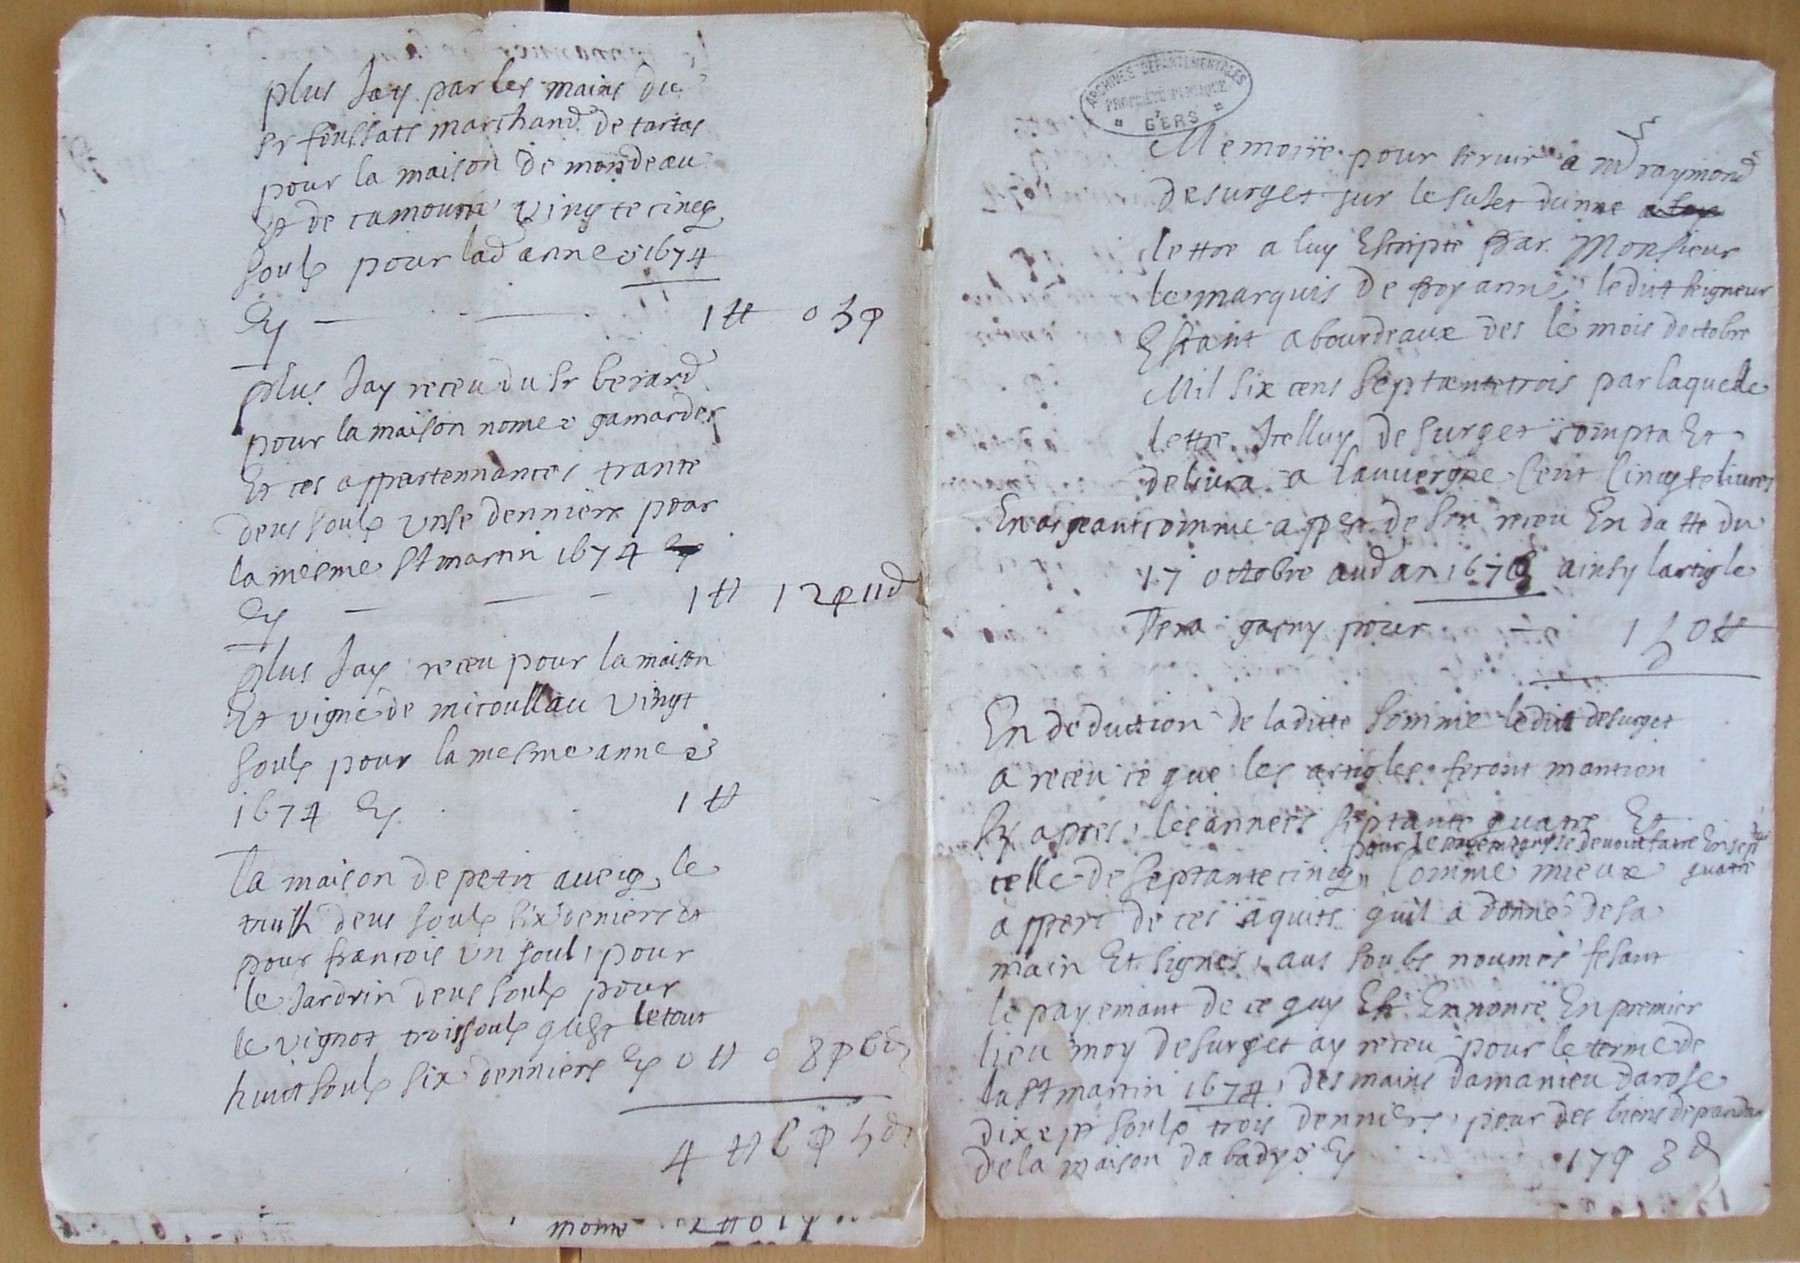 plus Jay par les mains du
sr foussats marchand de tartas
pour la maison de mondeau
Et de camourn vingt e cincq
soulz pour lad annee 1674
Ey 1 ₶ 0 5 ꝑ
plus Jay receu du sr berard
pour la maison nomee gamardes
Et ces appertennances trante
deus soulz unse denniers pour
la mesme st martin 1674
Ey 1 ₶ 12 ꝑ 11 d
plus Jay receu pour la maison
Et vigne de micoullau vingt
soulz pour la mesme annee
1674 Ey 1 ₶
la maison de petit le
deus soulz six deniers Et
pour francois un soul, pour
le Jardrin deus soulz pour
le vignot trois soulz quest le tout
huict soulz six denniers Ey 0 ₶ 0 8 ꝑ 6 d
4 ₶ 6 ꝑ 5 d
monte 2 ₶ 0 1
ARCHIVES DÉPARTEMENTALES
PROPRIÉTÉ PUBLIQUE
GERS
Memoire pour servir a mr raymond
desurget sur le suset dunne
lettre a luy Escripte Par Monsieur
le marquis de Poyanne, ledit seigneur
Estant a bourdeaux des le mois doctobre
Mil six cens septante trois par laquelle
lettre Icelluy desurget compta Et
delivra a lauvergne Cent Cinqte livres
En argeant comme apert de son receu En datte du
17 octobre aud an 1673 ainsy lartigle
sera pour 150 ₶
En deduction de laditte somme ledit desurget
a receu ce que les artigles feront mantion
sy apres, les annees septante quatre Et
pour le devoit faire En sept
celle de septante cinq, Comme mieux quatre
appert de ces aquits quil a donne de sa
main Et signes, aus soubs noumes fesant
le payemant de ce quy Est Ennonce En premier
lieu moy desurget ay receu pour le terme de
la st martin 1674, des mains damanieu darose
dix e sept soulz trois denniers, pour des biens depandans
de la maison dabadye Ey 17 ꝑ 3 d